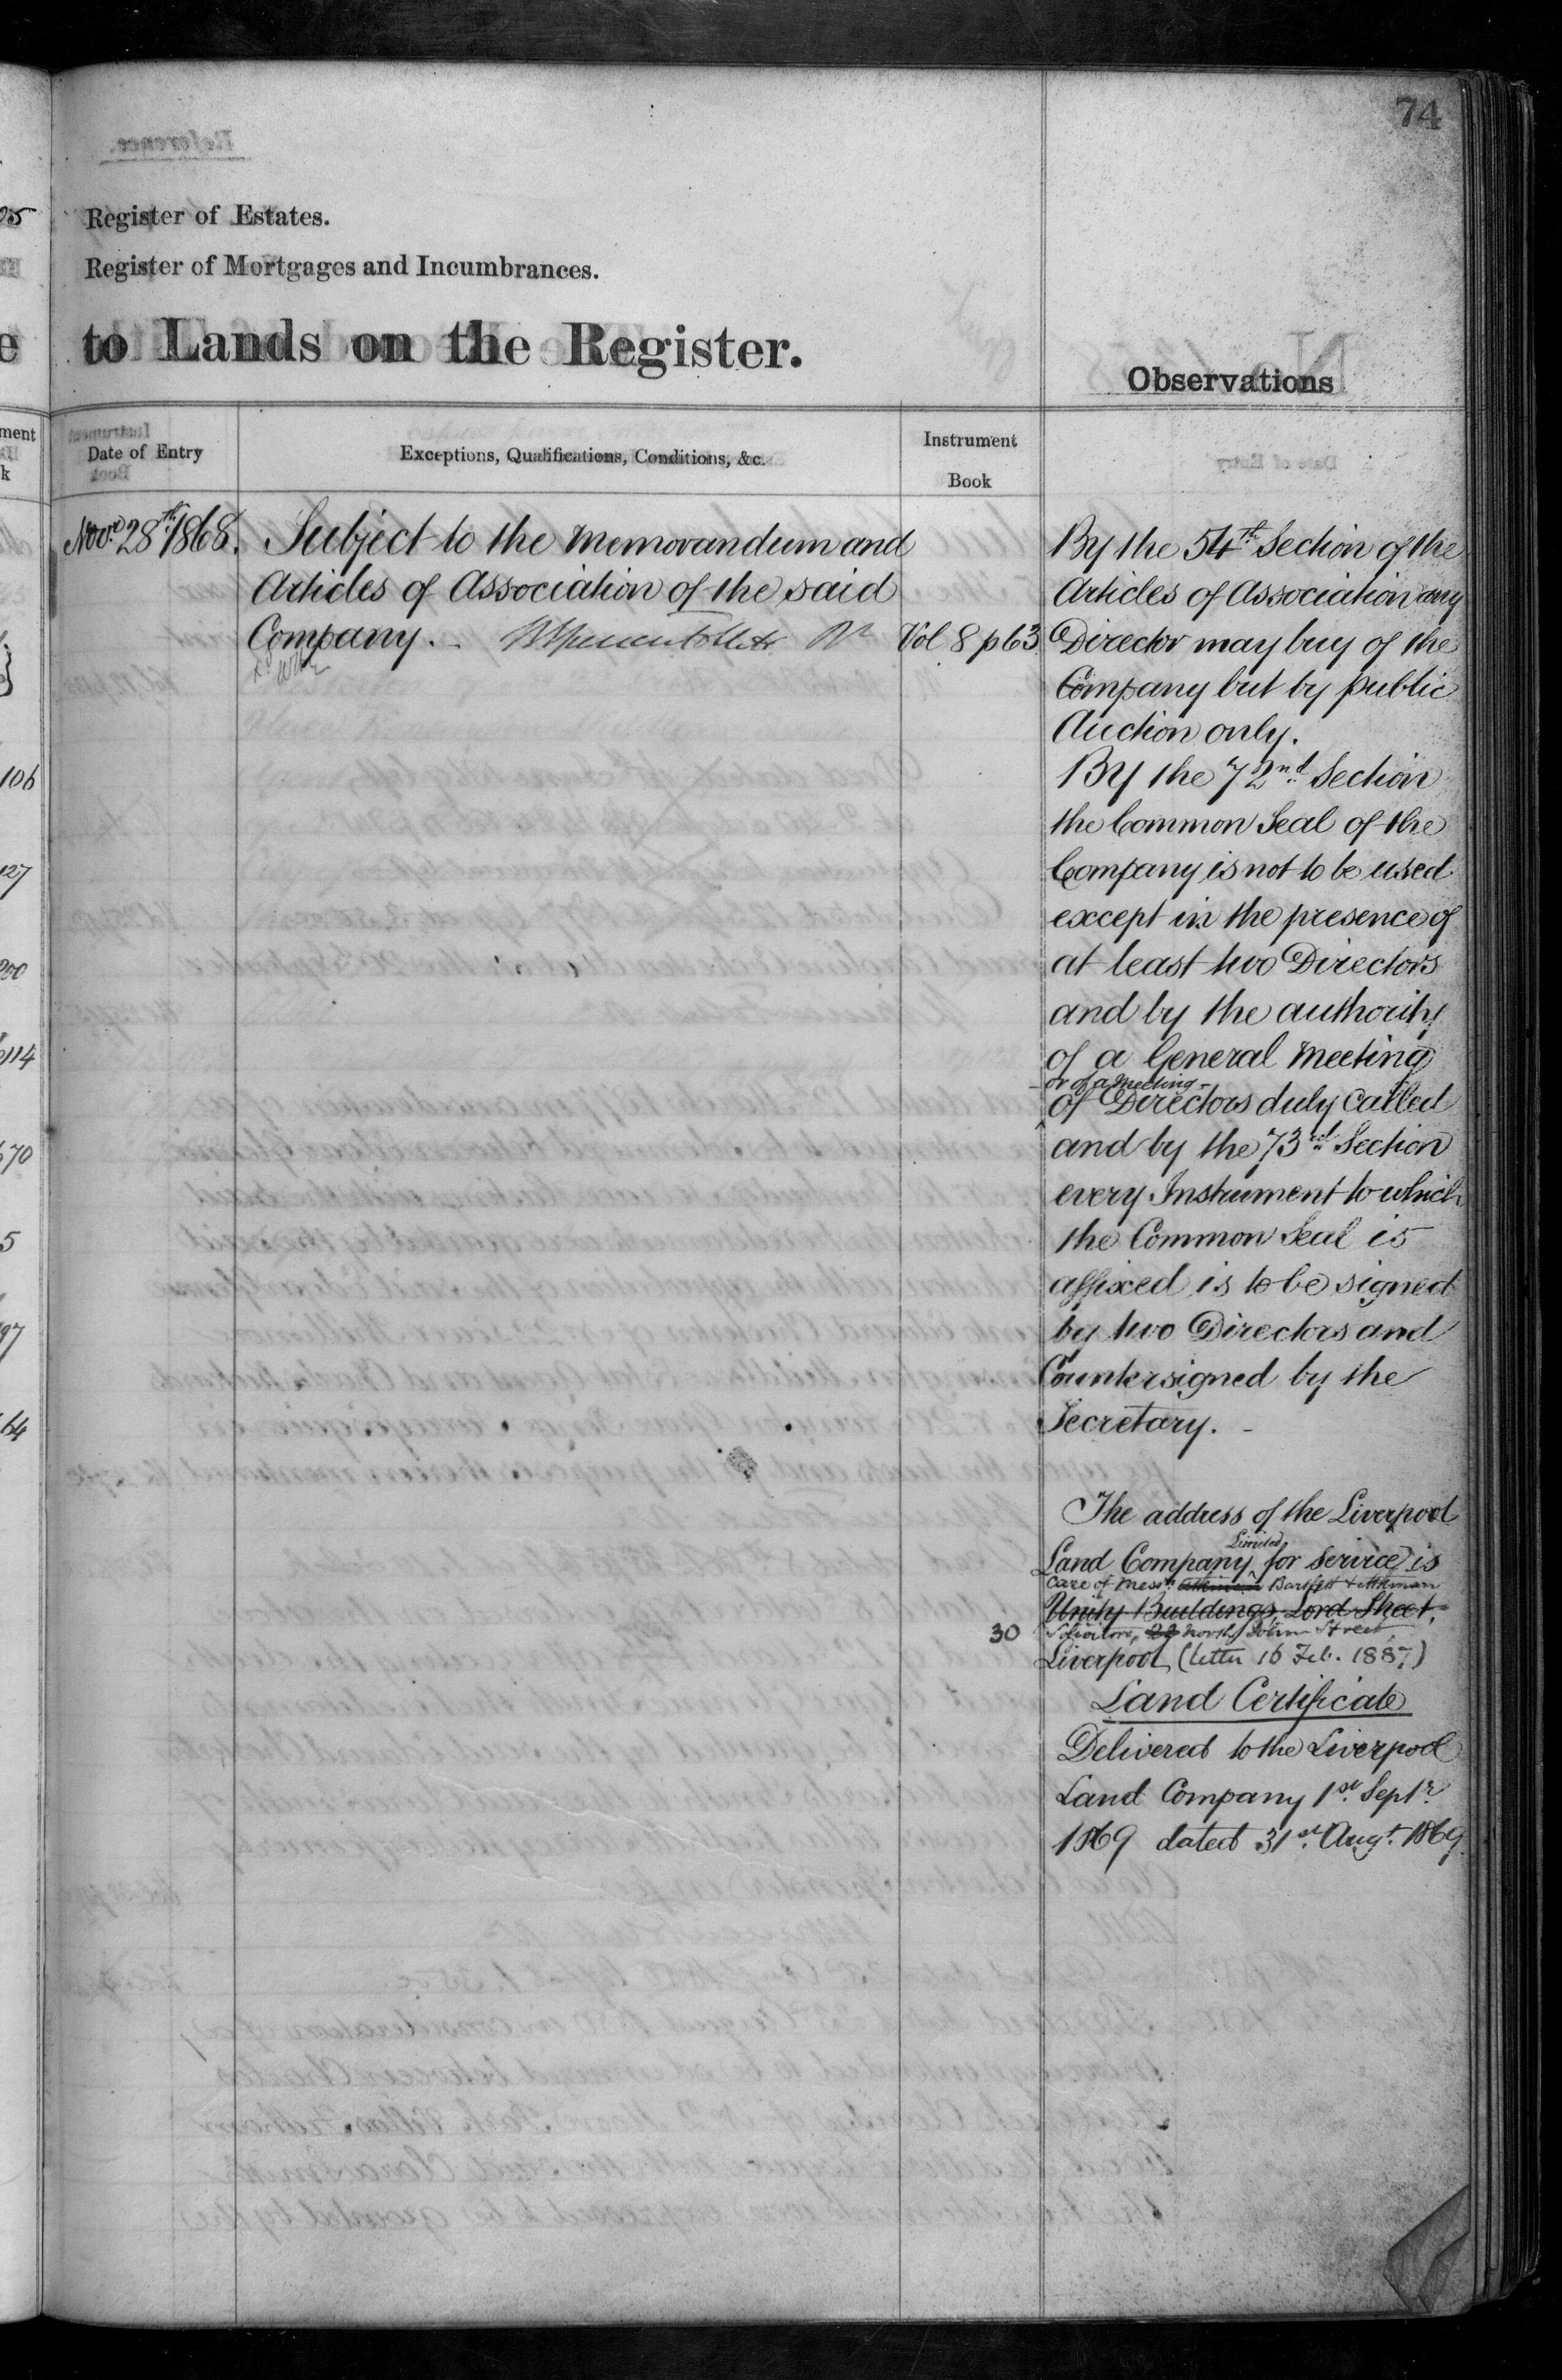 74
Register of Estates.
Register of Mortgages and Incumbrances.
to Lands on the Register.
Observations
Date of Entry
Exceptions, Qualifications, Conditions, &c.
Instrument
Book
Novr 28th 1868.
Subject to the Memorandum and
Articles of Association of the said
Company.
Vol 8 p 63
By the 54th Section of the
Articles of Association any
Director may buy of the
Company but by public
Auction only.
By the 72nd Section
the Common Seal of the
Company is not to be used
except in the presence of
at least two Directors
and by the authority
of a General Meeting
- or of a Meeting -
of Directors duly called
and by the 73rd Section
every Instrument to which
the Common Seal is
affixed is to be signed
by two Directors and
Countersigned by the
Secretary. -
The address of the Liverpool
Limited
Land Company for service is
Care of Messrs Atkinson Bartlett & Atkinson
Unity Buildings, Lord Street,
30 Solicitors, North John Street
Liverpool (letter 16 Feb. 1887)
Land Certificate
Delivered to the Liverpool
Land Company 1st Septr
1869 dated 31st Augt. 1869
106
127
200
114
670
5
97
64